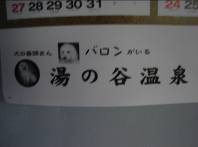 27 28 29 30 31
24 25
犬の番頭さん バロンがいる
湯の谷温泉